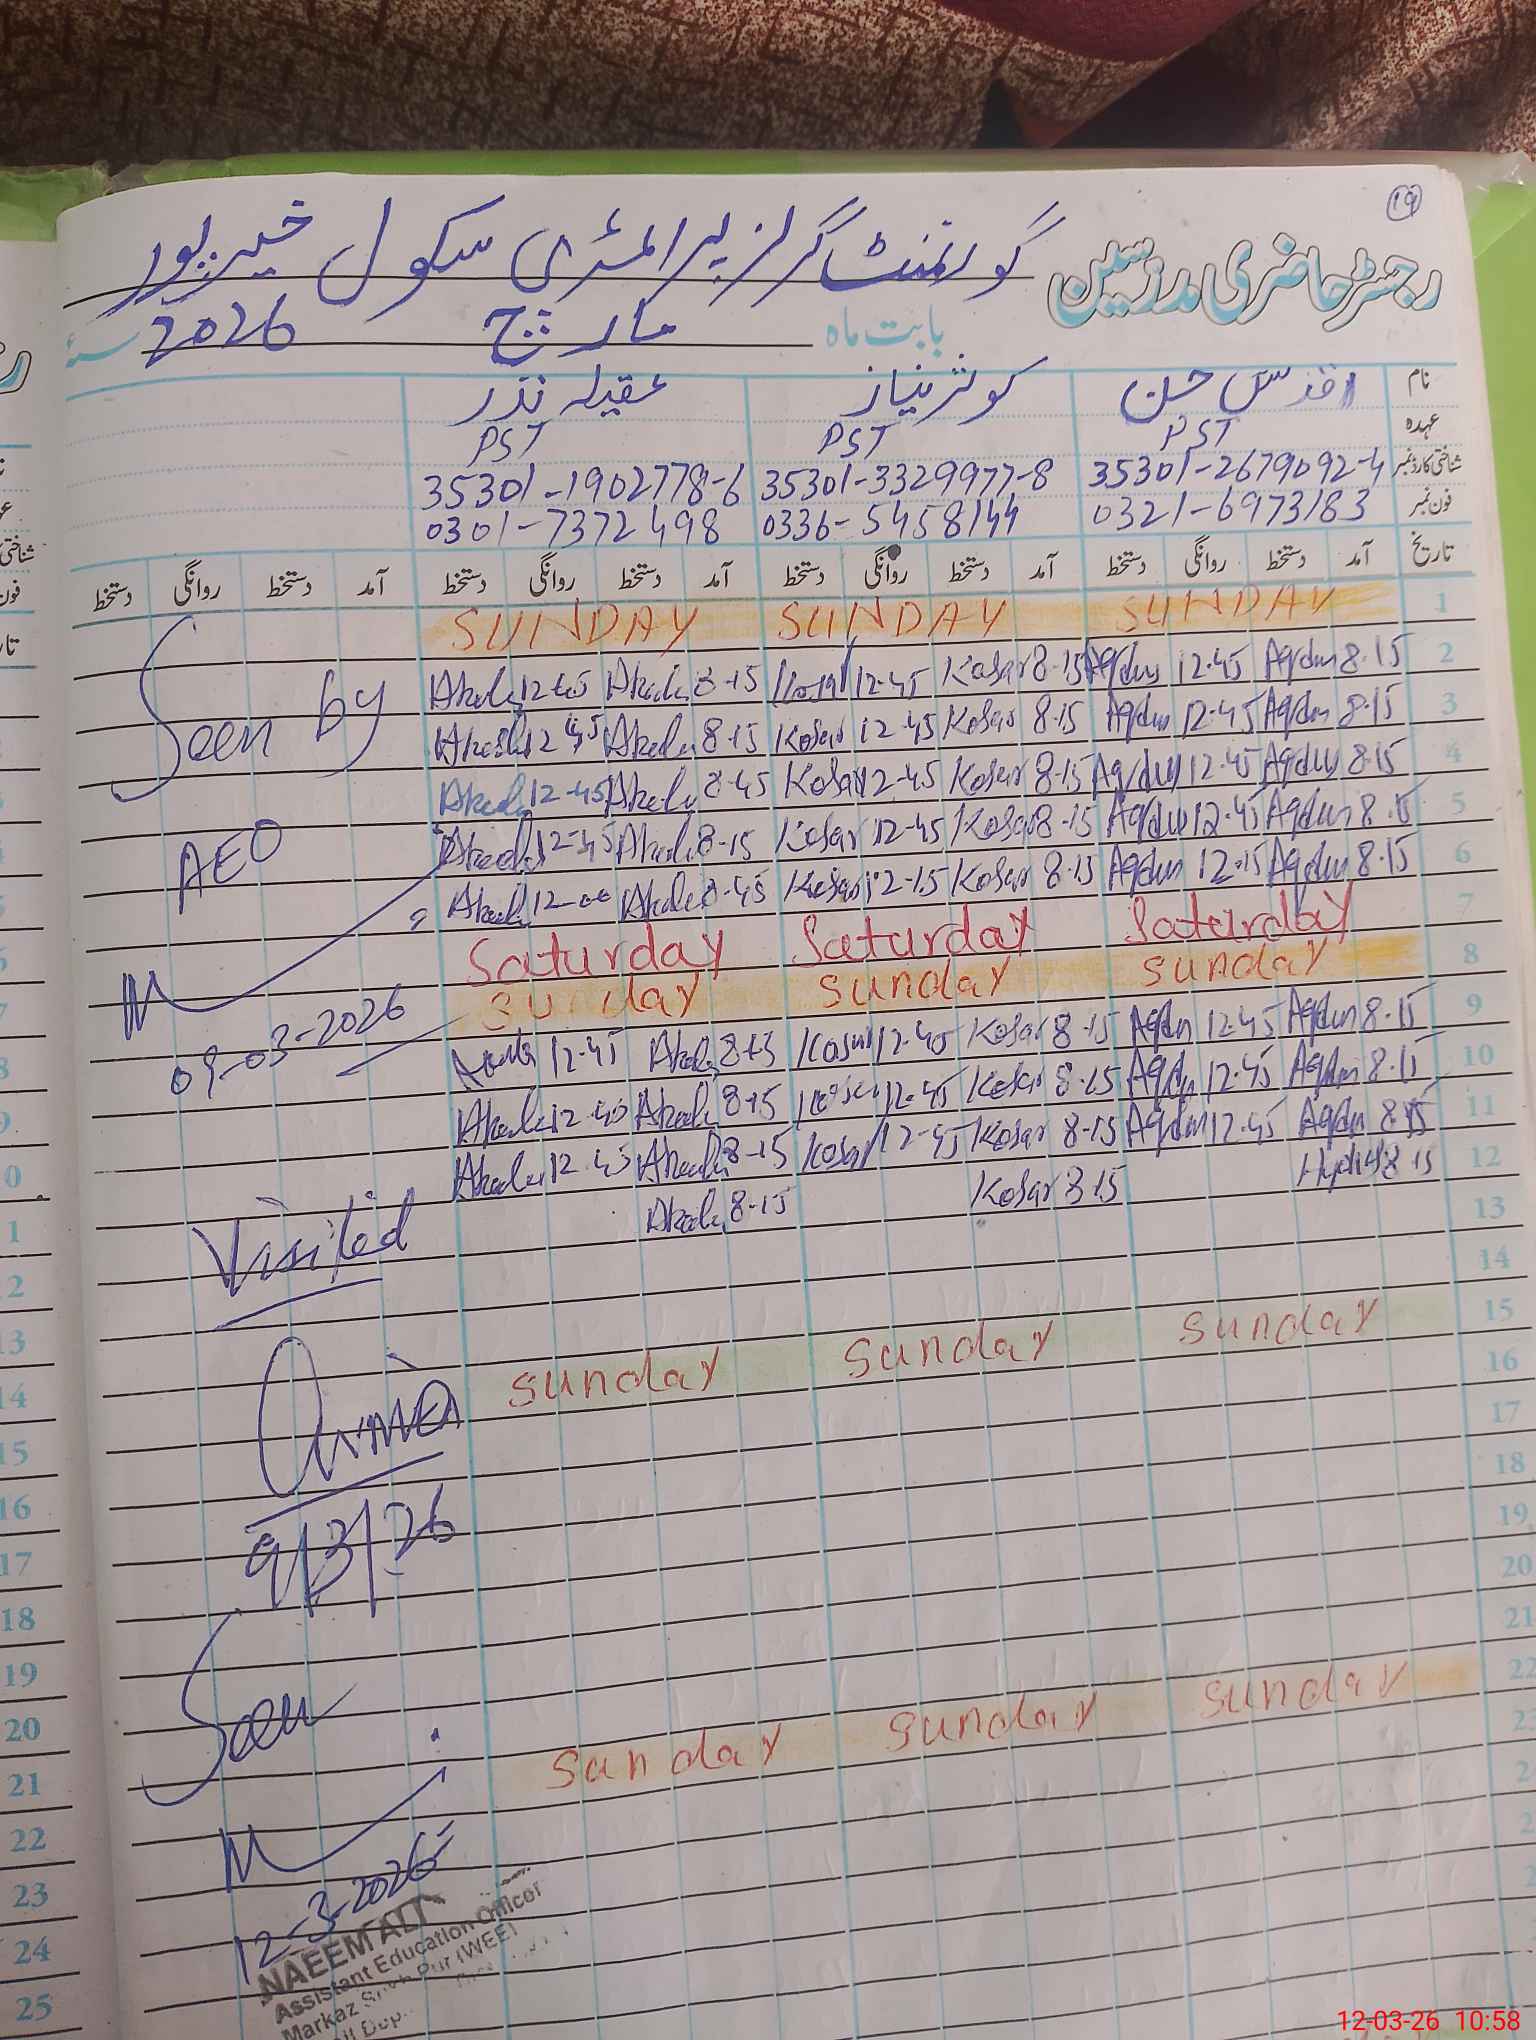 19
رجسٹر حاضری مدرسین گورنمنٹ گرلز پرائمری سکول خیرپور
بابت ماہ مارچ سنہ 2026
نام اقدس حسن کوثر نیاز عقیلہ نذر
عہدہ PST PST PST
شناختی کارڈ نمبر 35301-2679092-4 35301-3329977-8 35301-1902778-6
فون نمبر 0321-6973183 0336-5458144 0301-7372498
تاریخ آمد دستخط روانگی دستخط آمد دستخط روانگی دستخط آمد دستخط روانگی دستخط آمد دستخط روانگی دستخط
SUNDAY SUNDAY SUNDAY 1
Akeela 12-45 Akeela 8-15 12-45 Kosar 8-15 Aqdus 12-45 Aqdus 8-15 2
Akeela 12-45 Akeela 8-15 Kosar 12-45 Kosar 8-15 Aqdus 12-45 Aqdus 8-15 3
Akeela 12-45 Akeela 8-45 Kosar 12-45 Kosar 8-15 Aqdus 12-45 Aqdus 8-15 4
Akeela 12-45 Akeela 8-15 Kosar 12-45 Kosar 8-15 Aqdus 12-45 Aqdus 8-15 5
Akeela 12-00 Akeela 8-45 Kosar 12-15 Kosar 8-15 Aqdus 12-15 Aqdus 8-15 6
Saturday Saturday Saturday 7
Sunday Sunday Sunday 8
12-45 Akeela 8-15 Kosar 12-45 Kosar 8-15 Aqdus 12-45 Aqdus 8-15 9
Akeela 12-45 Akeela 8-15 Kosar 12-45 Kosar 8-15 Aqdus 12-45 Aqdus 8-15 10
Akeela 12-45 Akeela 8-15 Kosar 12-45 Kosar 8-15 Aqdus 12-45 Aqdus 8-15 11
Akeela 8-15 Kosar 8-15 8-15 12
13
14
Sunday Sunday Sunday 15
16
17
18
19
20
21
Sunday Sunday Sunday 22
Seen by
AEO
09-03-2026
Visited
9/3/26
Seen
12-3-2026
NAEEM ALI
Assistant Education Officer
Markaz Pur (WEE)
12-03-26 10:58